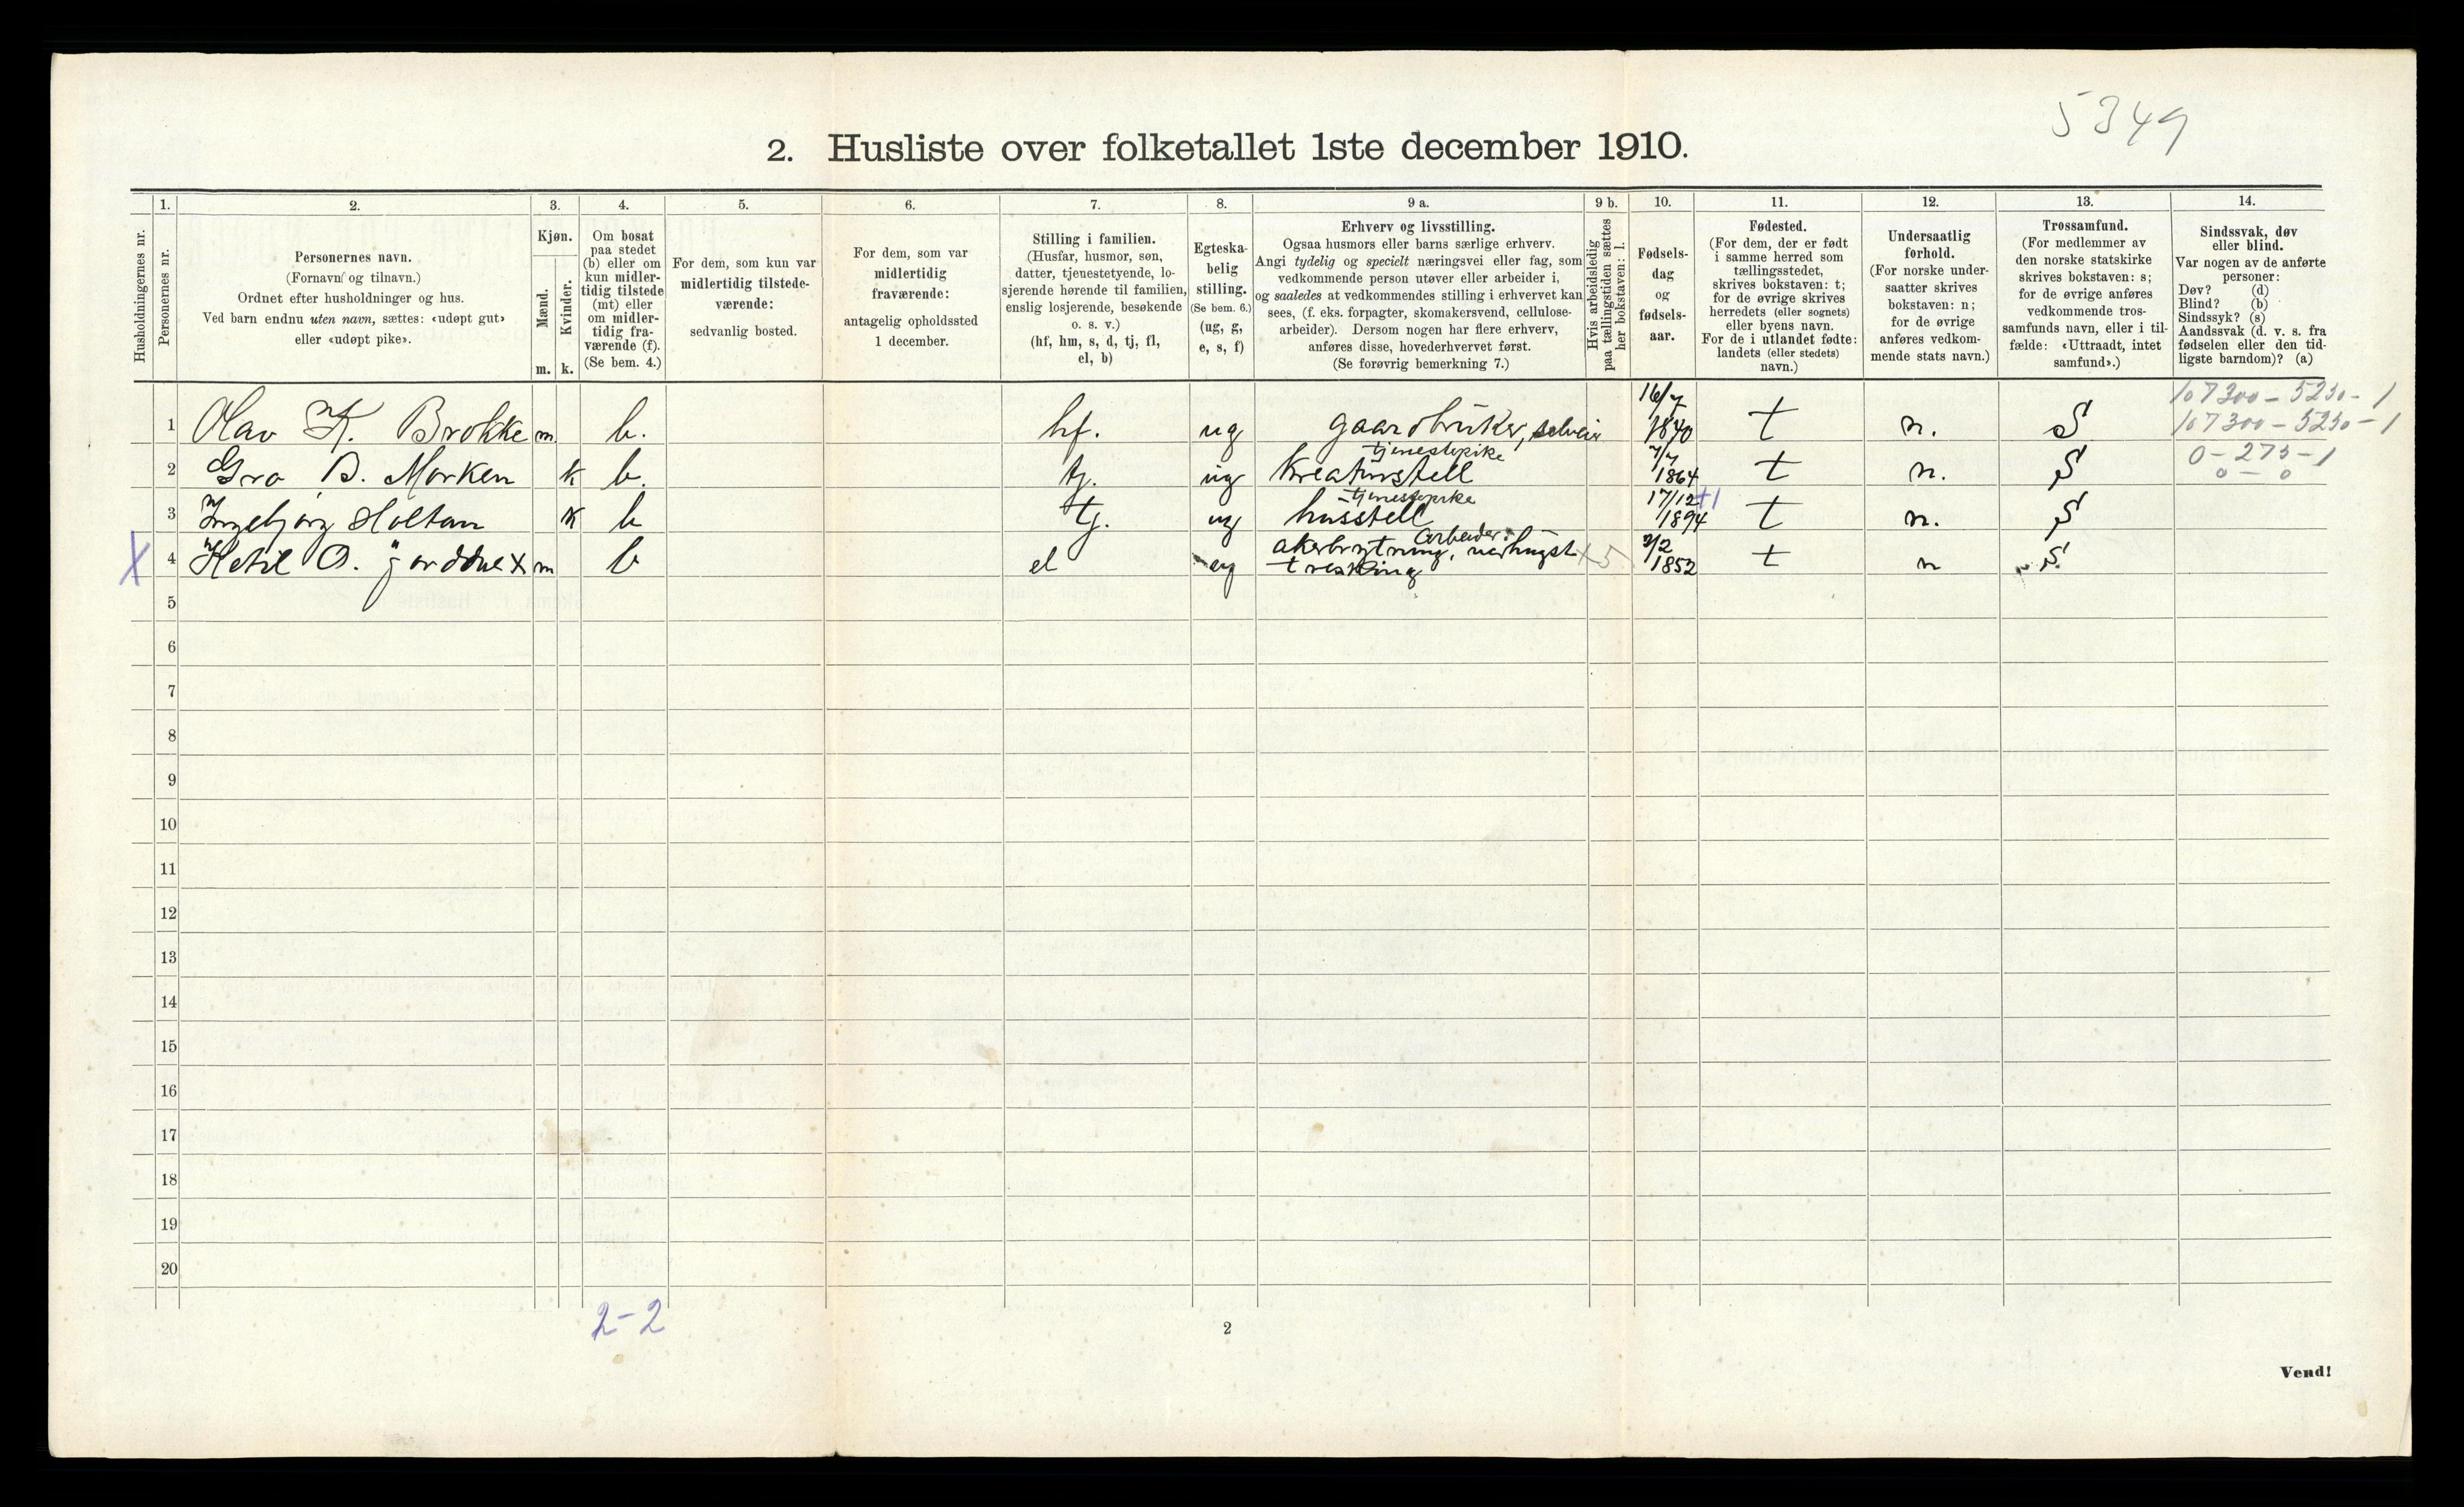 5349
2. Husliste over folketallet 1ste december 1910.
Husholdningernes nr.
1.
Personernes nr.
2.
Personernes navn.
(Fornavn og tilnavn.)
Ordnet efter husholdninger og hus.
Ved barn endnu uten navn, sættes: «udøpt gut»
eller «udøpt pike».
3.
Kjøn.
Mænd.
Kvinder.
m. k.
4.
Om bosat
paa stedet
(b) eller om
kun midler-
tidig tilstede
(mt) eller
om midler-
tidig fra-
værende (f).
(Se bem. 4.)
5.
For dem, som kun var
midlertidig tilstede-
værende:
sedvanlig bosted.
6.
For dem, som var
midlertidig
fraværende:
antagelig opholdssted
1 december.
7.
Stilling i familien.
(Husfar, husmor, søn,
datter, tjenestetyende, lo-
sjerende hørende til familien,
enslig losjerende, besøkende
o. s. v.)
(hf, hm, s, d, tj, fl,
el, b)
8.
Egteska-
belig
stilling.
(Se bem. 6.)
(ug, g,
e, s, f)
9 a.
Erhverv og livsstilling.
Ogsaa husmors eller barns særlige erhverv.
Angi tydelig og specielt næringsvei eller fag, som
vedkommende person utøver eller arbeider i,
og saaledes at vedkommendes stilling i erhvervet kan
sees, (f. eks. forpagter, skomakersvend, cellulose-
arbeider). Dersom nogen har flere erhverv,
anføres disse, hovederhvervet først.
(Se forøvrig bemerkning 7.)
9 b.
Hvis arbeidsledig
paa tællingstiden sættes
her bokstaven: l.
10.
Fødsels-
dag
og
fødsels-
aar.
11.
Fødested.
(For dem, der er født
i samme herred som
tællingsstedet,
skrives bokstaven: t;
for de øvrige skrives
herredets (eller sognets)
eller byens navn.
For de i utlandet fødte:
landets (eller stedets)
navn.)
12.
Undersaatlig
forhold.
(For norske under-
saatter skrives
bokstaven: n;
for de øvrige
anføres vedkom-
mende stats navn.)
13.
Trossamfund.
(For medlemmer av
den norske statskirke
skrives bokstaven: s;
for de øvrige anføres
vedkommende tros-
samfunds navn, eller i til-
fælde: «Uttraadt, intet
samfund».)
14.
Sindssvak, døv
eller blind.
Var nogen av de anførte
personer:
Døv? (d)
Blind? (b)
Sindssyk? (s)
Aandssvak (d. v. s. fra
fødselen eller den tid-
ligste barndom)? (a)
107300 - 5250 - 1
1 Olav K. Brokke m. b. hf. ug gaardbruker, selveier 16/7 1840 t n. S 107300 - 5250 - 1
tjenestepike 0 - 275 - 1
2 Gro B. Morken k b. tj. ug kreaturstell 7/7 1864 t n. S 0 - 0
tjenestepike
3 Ingebjørg Holtan k b tj. ug husstell 17/12 1894 +1 t n. S
Arbeider:
X 4 Ketil O. X m b el ug akerbrytning, vedhugst +5 2/2 1852 t n S.
tresking
5
6
7
8
9
10
11
12
13
14
15
16
17
18
19
20
2-2
2
Vend!